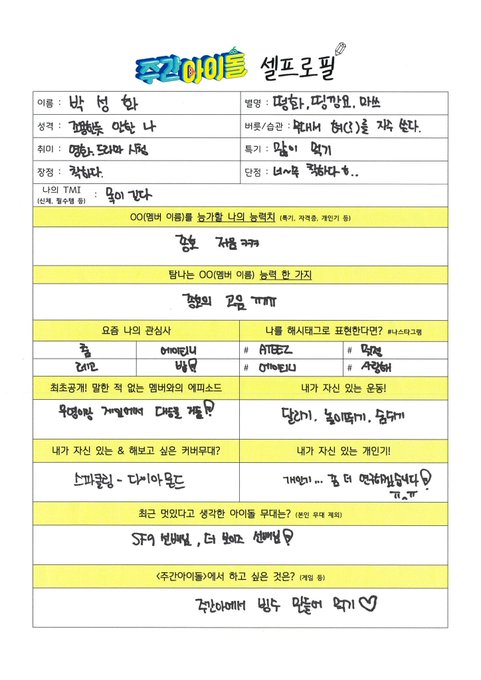 주간아이돌 셀프로필
이름 : 박 성 화 별명 : 떵화, 띵깡요, 마쓰
성격 : 조용한듯 안한 나 버릇/습관 : 무대서 혀(!)를 자주 쓴다.
취미 : 영화, 드라마 시청 특기 : 많이 먹기
장점 : 착하다. 단점 : 너~무 착하다ㅎ..
나의 TMI
(신체, 필수템 등) : 목이 길다
OO(멤버 이름)를 능가할 나의 능력치 (특기, 자격증, 개인기 등)
종호 저음 ㅋㅋㅋ
탐나는 OO(멤버 이름) 능력 한 가지
종호의 고음 ㅠㅠㅠ
요즘 나의 관심사 나를 해시태그로 표현한다면? #나스타그램
춤 에이티니 # ATEEZ #
레고 밥 # 에이티니 # 사랑해
최초공개! 말한 적 없는 멤버와의 에피소드 내가 자신 있는 운동!
우영이랑 게임에서 대승을 거둠! 달리기, 높이뛰기, 숨쉬기
내가 자신 있는 & 해보고 싶은 커버무대? 내가 자신 있는 개인기!
스파클링 - 다이아몬드 개인기... 좀 더 연구하겠습니다!
ㅠ^ㅠ
최근 멋있다고 생각한 아이돌 무대는? (본인 무대 제외)
SF9 선배님, 더 보이즈 선배님!
<주간아이돌>에서 하고 싶은 것은? (게임 등)
주간아에서 빙수 만들어 먹기♡